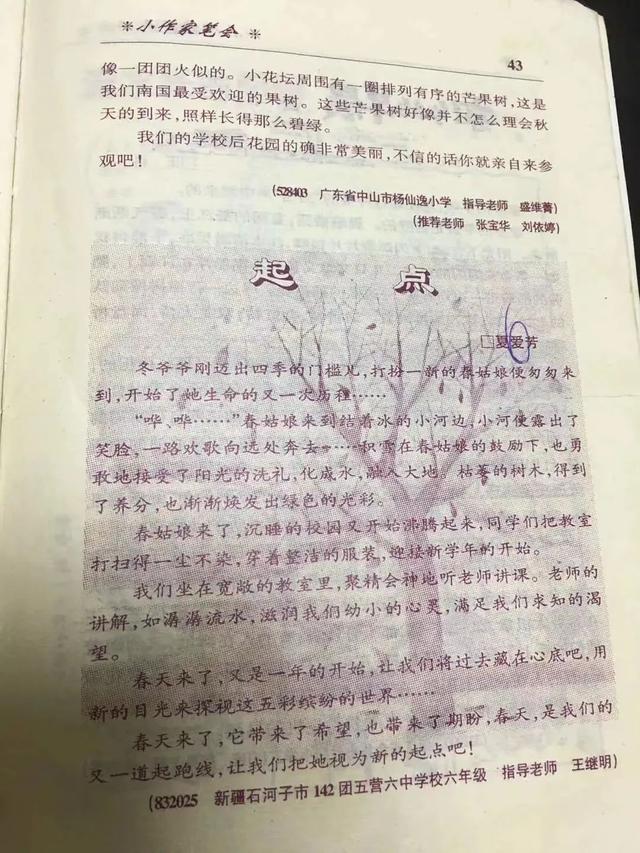 ※小作家笔会※
43
像一团团火似的。小花坛周围有一圈排列有序的芒果树，这是
我们南国最受欢迎的果树。这些芒果树好像并不怎么理会秋
天的到来，照样长得那么碧绿。
我们的学校后花园的确非常美丽，不信的话你就亲自来参
观吧！
(528403 广东省中山市杨仙逸小学 指导老师 盛维菁)
(推荐老师 张宝华 刘依婷)
起点
□夏爱芳
冬爷爷刚迈出四季的门槛儿，打扮一新的春姑娘便匆匆来
到，开始了她生命的又一次历程……
“哗、哗……”春姑娘来到结着冰的小河边，小河便露出了
笑脸，一路欢歌向远处奔去……积雪在春姑娘的鼓励下，也勇
敢地接受了阳光的洗礼，化成水，融入大地。枯萎的树木，得到
了养分，也渐渐焕发出绿色的光彩。
春姑娘来了，沉睡的校园又开始沸腾起来，同学们把教室
打扫得一尘不染，穿着整洁的服装，迎接新学年的开始。
我们坐在宽敞的教室里，聚精会神地听老师讲课。老师的
讲解，如潺潺流水，滋润我们幼小的心灵，满足我们求知的渴
望。
春天来了，又是一年的开始，让我们将过去藏在心底吧，用
新的目光来探视这五彩缤纷的世界……
春天来了，它带来了希望，也带来了期盼，春天，是我们的
又一道起跑线，让我们把她视为新的起点吧！
(832025 新疆石河子市142团五营六中学校六年级 指导老师 王继明)